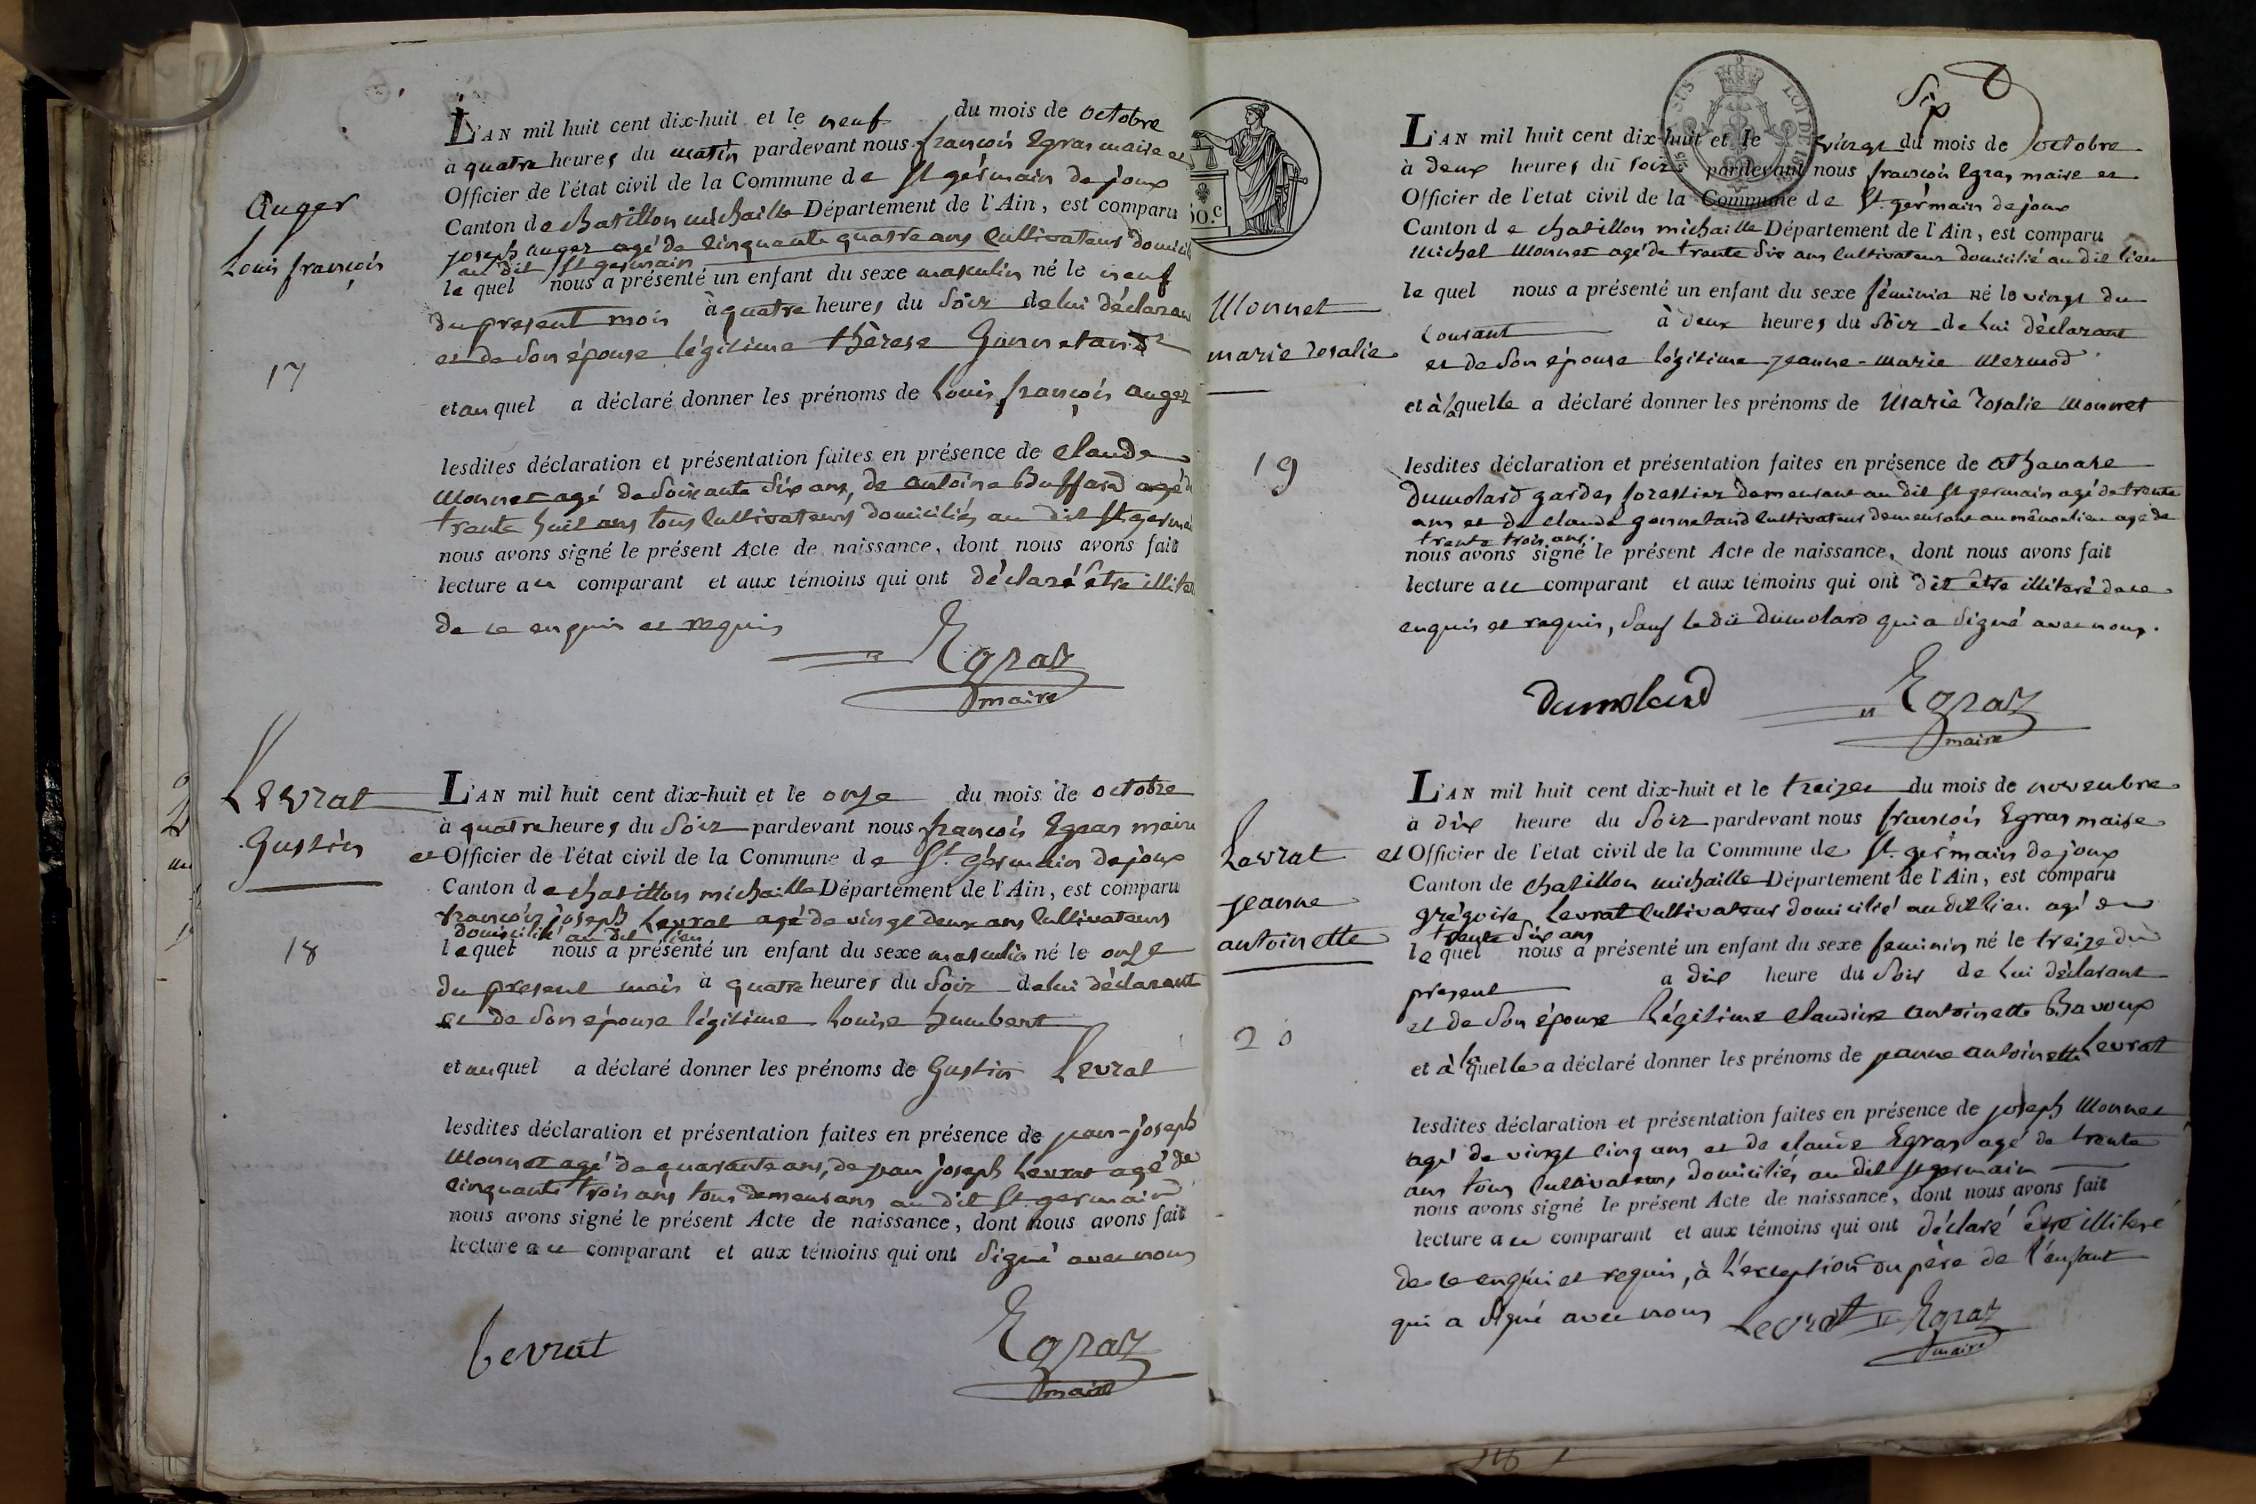 L'AN mil huit cent dix-huit et le neuf du mois de octobre
à quatre heures du matin pardevant nous françois Egraz maire et
Officier de l'état civil de la Commune de St. gérmain de joux
Canton de chatillon michaille Département de l'Ain, est comparu
joseph auger agé de cinquante quatre ans cultivateur domicil
au dit St germain
le quel nous a présenté un enfant du sexe masculin né le neuf
du present mois à quatre heures du soir de lui déclaran
et de son épouse légitime thérese Gonnetand
et au quel a déclaré donner les prénoms de Louis françois auger
lesdites déclaration et présentation faites en présence de claude
Monnet agé de soixante six ans, de antoine Buffard agé d
trente huit ans tous cultivateurs domiciliés au dit St germai
nous avons signé le présent Acte de naissance, dont nous avons fait
lecture au comparant et aux témoins qui ont déclaré être illiter
de ce enquis et requis
Egraz
maire
auger
Louis françois
17
Levrat
Gustin
18
L'AN mil huit cent dix-huit et le onze du mois de octobre
à quatre heures du soir pardevant nous françois Egraz maire
et Officier de l'état civil de la Commune de St. gérmain de joux
Canton de chatillon michaille Département de l'Ain, est comparu
françois joseph Levrat agé de vingt deux ans cultivateurs
domicilié au dit lien
le quel nous a présenté un enfant du sexe masculin né le onze
du present mois à quatre heures du soir de lui déclarant
et de son épouse légitime Louise humbert
et au quel a déclaré donner les prénoms de Gustin Levrat
lesdites déclaration et présentation faites en présence de jean-joseph
Monnet agé de quarante ans, de jean joseph Levrat agé de
cinquante trois ans tous demeurans au dit St. germain
nous avons signé le présent Acte de naissance, dont nous avons fait
lecture au comparant et aux témoins qui ont signé avec nous
Levrat
Egraz
maire
LOI DE
50.c
six
L'AN mil huit cent dix-huit et le vingt du mois de octobre
à deux heures du soir pardevant nous françois Egraz maire et
Officier de l'etat civil de la Commune de St. gérmain de joux
Canton de chatillon michaille Département de l'Ain, est comparu
Michel Monnet agé de trente six ans cultivateur domicilié au dit lieu
le quel nous a présenté un enfant du sexe féminin né le vingt du
courant à deux heures du soir de lui déclarant
et de son épouse légitime jeanne-marie Mermod
et à la quelle a déclaré donner les prénoms de Marie rosalie Monnet
lesdites déclaration et présentation faites en présence de athanase
Dumolard gardes forestier demeurant au dit St germain agé de trente
ans et de claude gonnetand cultivateur demeurant au même lieu agé de
trente trois ans.
nous avons signé le présent Acte de naissance, dont nous avons fait
lecture au comparant et aux témoins qui ont dit être illiteré de ce
enquis et requis, sauf le dit Dumolard qui a signé avec nous.
Dumolard
Egraz
maire
Monnet
marie rosalie
19
Levrat
jeanne
antoinette
20
L'AN mil huit cent dix-huit et le treize du mois de novembre
à dix heure du soir pardevant nous françois Egraz maire
et Officier de l'état civil de la Commune de St. gérmain de joux
Canton de chatillon michaille Département de l'Ain, est comparu
grégoire Levrat cultivateur domicilié au dit lieu agé de
trente six ans
le quel nous a présenté un enfant du sexe feminin né le treize du
present à dix heure du soir de lui déclarant
et de son épouse légitime claudine antoinette Bavoux
et à la quelle a déclaré donner les prénoms de jeanne antoinette Levrat
lesdites déclaration et présentation faites en présence de joseph Monnet
agé de vingt cinq ans et de claude Egraz agé de trente
ans tous cultivateurs, domiciliés au dit St germain
nous avons signé le présent Acte de naissance, dont nous avons fait
lecture au comparant et aux témoins qui ont déclaré être illiteré
de ce enquis et requis, à l'exception du père de l'enfant
qui a signé avec nous Levrat Egraz
maire